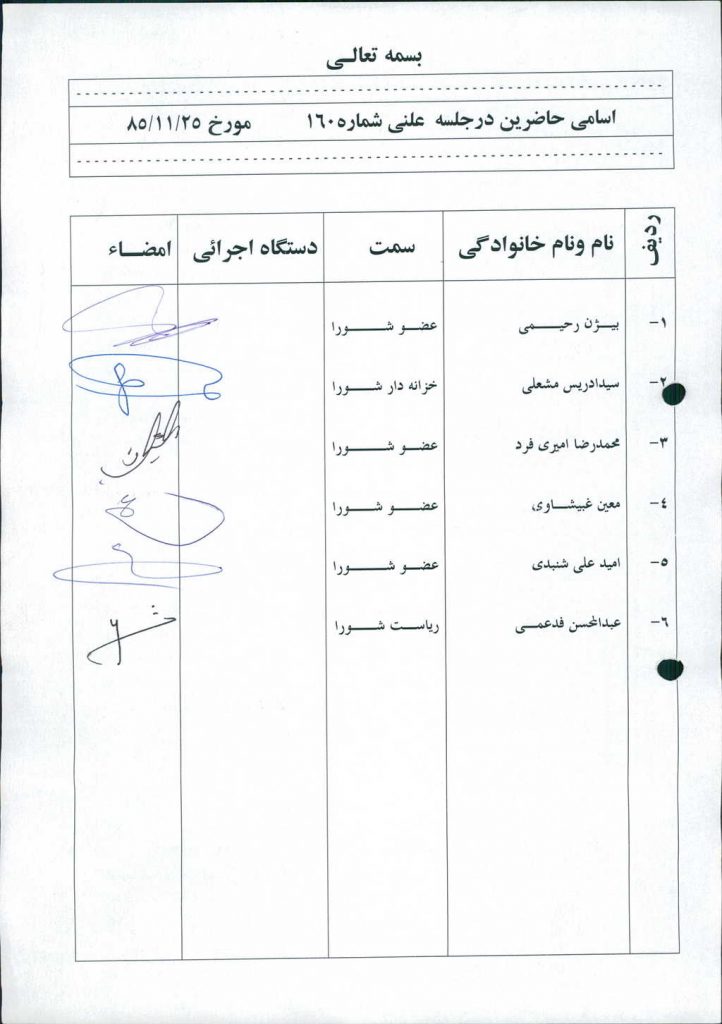 بسمه تعالی
اسامی حاضرین درجلسه علنی شماره ۱۶۰ مورخ ۸۵/۱۱/۲۵
ردیف نام ونام خانوادگی سمت دستگاه اجرائی امضاء
۱- بیژن رحیمی عضو شورا
۲- سیدادریس مشعلی خزانه دار شورا
۳- محمدرضا امیری فرد عضو شورا
۴- معین غبیشاوی عضو شورا
۵- امید علی شنبدی عضو شورا
۶- عبدالمحسن فدعمی ریاست شورا